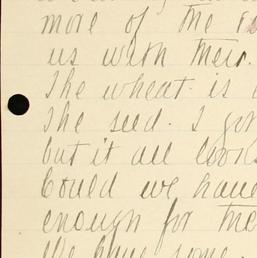 more of the
us with their.
The wheat is
the seed. I got
but it all looks
Could we have
enough for the
We have some